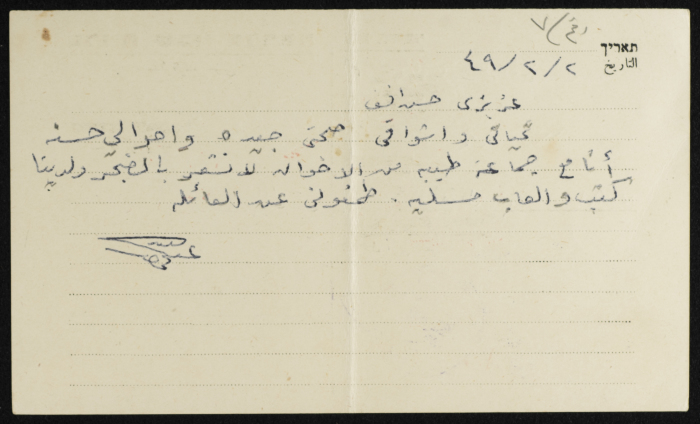 תאריך
التاريخ ٤٩/٢/٢
عزيزي
تحياتي واشواقي صحتي جيده واحوالي حسنه
أنا مع جماعة طيبه من الاخوان لا نشعر بالضجر ولدينا
كتب والعاب مسليه. طمنوني عن العائله